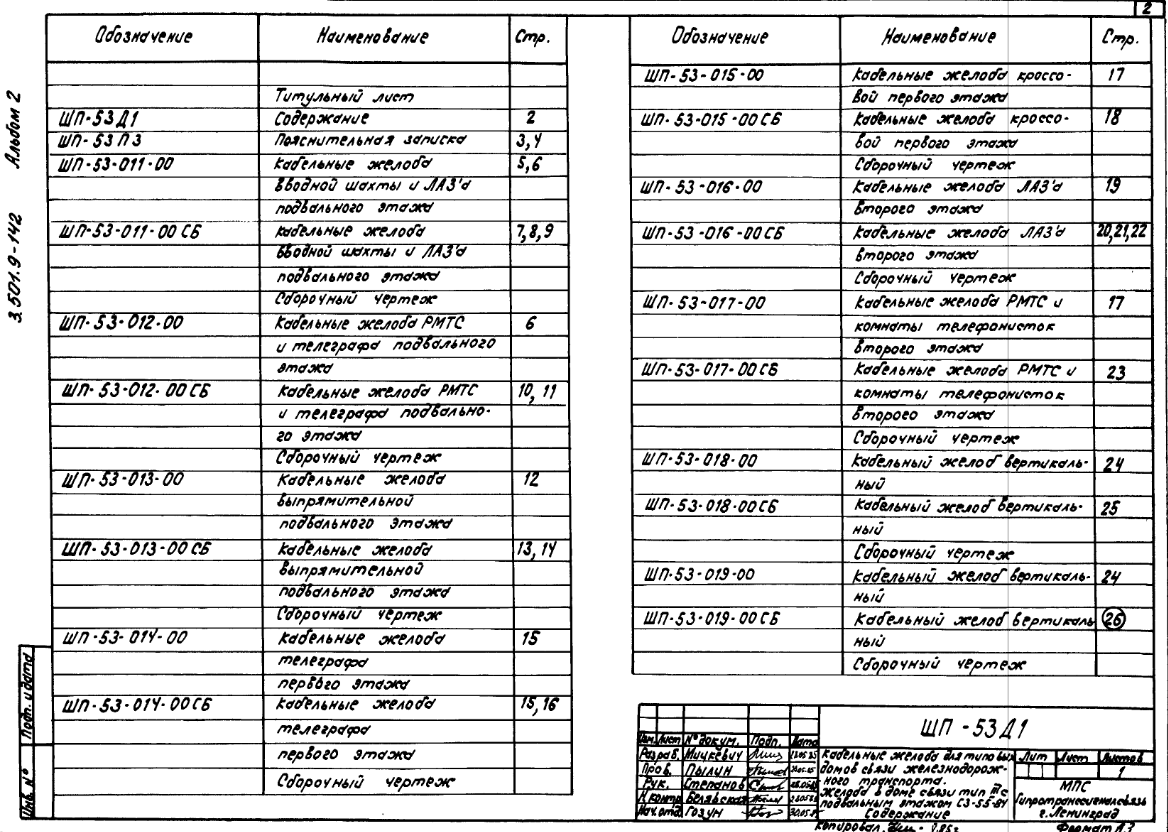 2
Альбом 2
3.501.9-142
Обозначение Наименование Стр.
Титульный лист
ШП-53Д1 Содержание 2
ШП-53ПЗ Пояснительная записка 3,4
ШП-53-011-00 Кабельные желоба 5,6
вводной шахты и ЛАЗ'а
подвального этажа
ШП-53-011-00СБ Кабельные желоба 7,8,9
вводной шахты и ЛАЗ'а
подвального этажа
Сборочный чертеж
ШП-53-012-00 Кабельные желоба РМТС 6
и телеграфа подвального
этажа
ШП-53-012-00СБ Кабельные желоба РМТС 10, 11
и телеграфа подвально-
го этажа
Сборочный чертеж
ШП-53-013-00 Кабельные желоба 12
выпрямительной
подвального этажа
ШП-53-013-00СБ Кабельные желоба 13,14
выпрямительной
подвального этажа
Сборочный чертеж
ШП-53-014-00 Кабельные желоба 15
телеграфа
первого этажа
ШП-53-014-00СБ Кабельные желоба 15,16
телеграфа
первого этажа
Сборочный чертеж
Обозначение Наименование Стр.
ШП-53-015-00 Кабельные желоба кроссо- 17
вой первого этажа
ШП-53-015-00СБ Кабельные желоба кроссо- 18
вой первого этажа
Сборочный чертеж
ШП-53-016-00 Кабельные желоба ЛАЗ'а 19
второго этажа
ШП-53-016-00СБ Кабельные желоба ЛАЗ'а 20,21,22
второго этажа
Сборочный чертеж
ШП-53-017-00 Кабельные желоба РМТС и 17
комнаты телефонисток
второго этажа
ШП-53-017-00СБ Кабельные желоба РМТС и 23
комнаты телефонисток
второго этажа
Сборочный чертеж
ШП-53-018-00 Кабельный желоб вертикаль- 24
ный
ШП-53-018-00СБ Кабельный желоб вертикаль- 25
ный
Сборочный чертеж
ШП-53-019-00 Кабельный желоб вертикаль- 24
ный
ШП-53-019-00СБ Кабельный желоб вертикаль 26
ный
Сборочный чертеж
Инв. № Подп. и дата
ШП-53Д1
Изм. Лист № докум. Подп. Дата
Разраб. Мицкевич
Пров. Пылин
Рук. Степанов
Н.контр. Бельская
Нач.отд. Гозун
Кабельные желоба для типовых
домов связи железнодорож-
ного транспорта.
Желоба в доме связи тип III с
подвальным этажом СЗ-55-84
Содержание
Лит Лист Листов
1
МПС
Гипротранссигналсвязь
г. Ленинград
Копировал
Формат А3